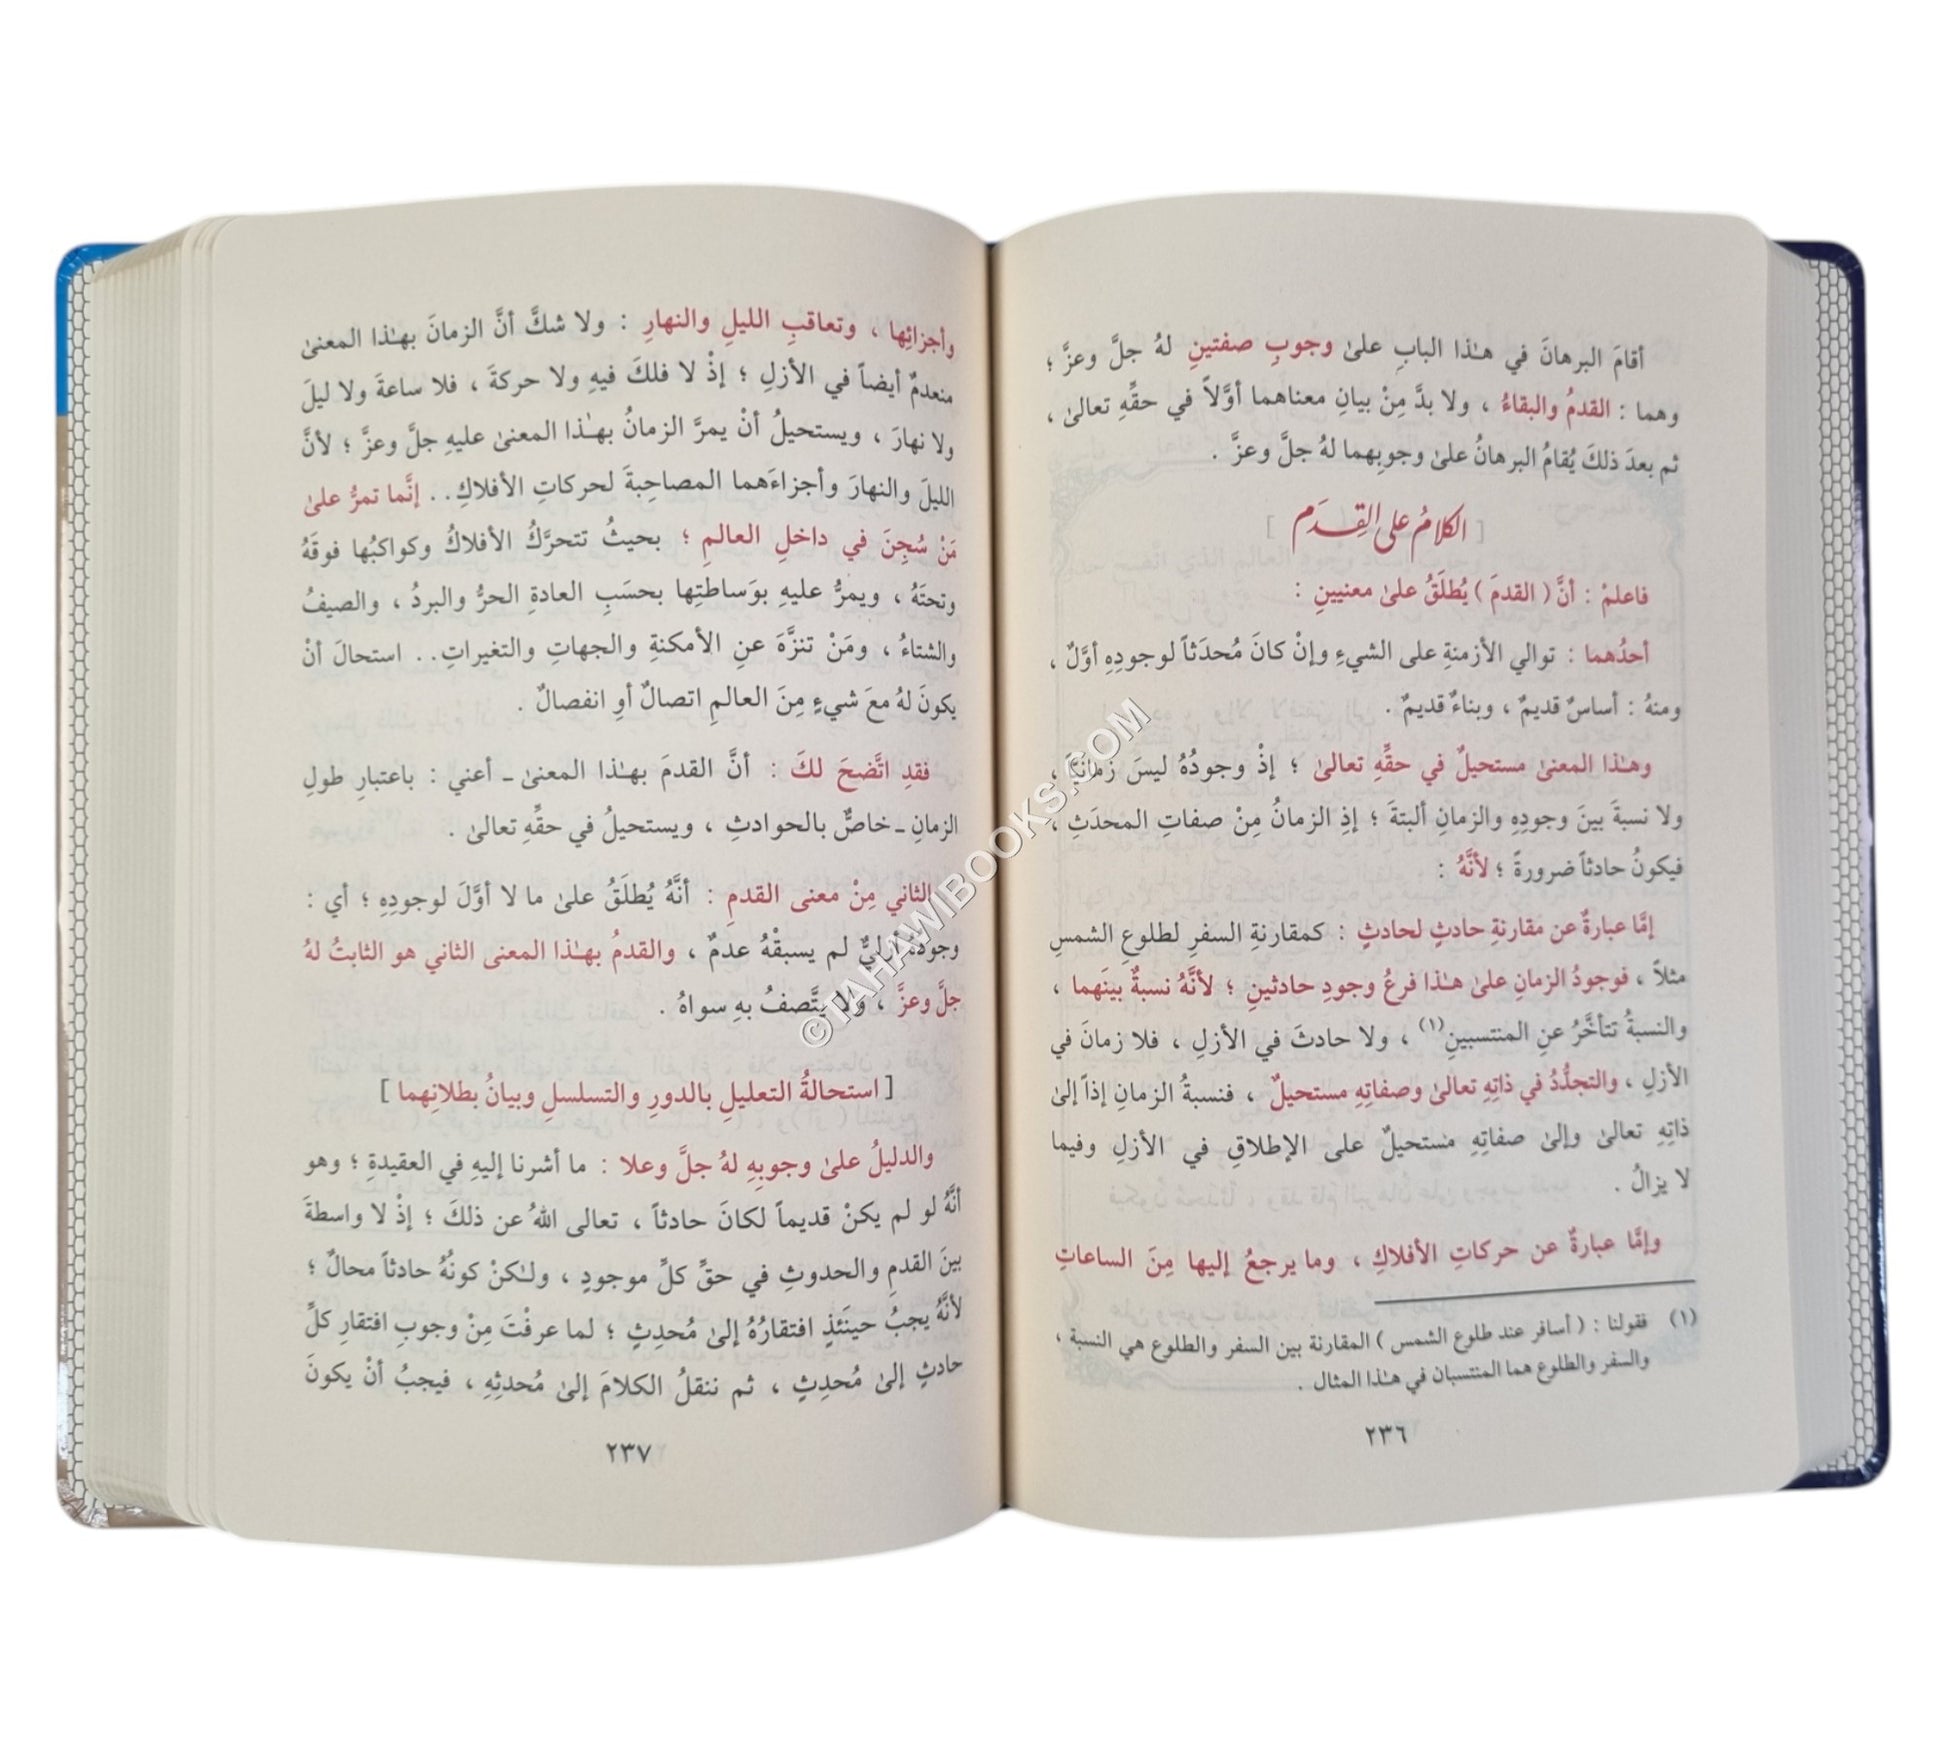 أقامَ البرهانَ في هـٰذا البابِ علىٰ وجوبِ صفتينِ لهُ جلَّ وعزَّ ؛
وهما : القدمُ والبقاءُ ، ولا بدَّ مِنْ بيانِ معناهما أوَّلاً في حقِّهِ تعالىٰ ،
ثم بعدَ ذلكَ يُقامُ البرهانُ علىٰ وجوبِهما لهُ جلَّ وعزَّ .
[ الكلامُ على القِدَم ]
فاعلمْ : أنَّ ( القدمَ ) يُطلَقُ علىٰ معنيينِ :
أحدُهما : توالي الأزمنةِ على الشيءِ وإنْ كانَ مُحدَثاً لوجودِهِ أوَّلٌ ،
ومنهُ : أساسٌ قديمٌ ، وبناءٌ قديمٌ .
وهـٰذا المعنىٰ مستحيلٌ في حقِّهِ تعالىٰ ؛ إذْ وجودُهُ ليسَ زمانيّاً ،
ولا نسبةَ بينَ وجودِهِ والزمانِ ألبتةَ ؛ إذِ الزمانُ مِنْ صفاتِ المحدَثِ ،
فيكونُ حادثاً ضرورةً ؛ لأنَّهُ :
إمَّا عبارةٌ عن مقارنةِ حادثٍ لحادثٍ : كمقارنةِ السفرِ لطلوعِ الشمسِ
مثلاً ، فوجودُ الزمانِ علىٰ هـٰذا فرعُ وجودِ حادثينِ ؛ لأنَّهُ نسبةٌ بينَهما ،
والنسبةُ تتأخَّرُ عنِ المنتسبينِ(١) ، ولا حادثَ في الأزلِ ، فلا زمانَ في
الأزلِ ، والتجدُّدُ في ذاتِهِ تعالىٰ وصفاتِهِ مستحيلٌ ، فنسبةُ الزمانِ إذاً إلىٰ
ذاتِهِ تعالىٰ وإلىٰ صفاتِهِ مستحيلٌ على الإطلاقِ في الأزلِ وفيما
لا يزالُ .
وإمَّا عبارةٌ عن حركاتِ الأفلاكِ ، وما يرجعُ إليها مِنَ الساعاتِ
(١) فقولنا : ( أسافر عند طلوع الشمس ) المقارنة بين السفر والطلوع هي النسبة ،
والسفر والطلوع هما المنتسبان في هـٰذا المثال .
٢٣٦
وأجزائِها ، وتعاقبِ الليلِ والنهارِ : ولا شكَّ أنَّ الزمانَ بهـٰذا المعنىٰ
منعدمٌ أيضاً في الأزلِ ؛ إذْ لا فلكَ فيهِ ولا حركةَ ، فلا ساعةَ ولا ليلَ
ولا نهارَ ، ويستحيلُ أنْ يمرَّ الزمانُ بهـٰذا المعنىٰ عليهِ جلَّ وعزَّ ؛ لأنَّ
الليلَ والنهارَ وأجزاءَهما المصاحِبةَ لحركاتِ الأفلاكِ.. إنَّما تمرُّ علىٰ
مَنْ سُجِنَ في داخلِ العالمِ ؛ بحيثُ تتحرَّكُ الأفلاكُ وكواكبُها فوقَهُ
وتحتَهُ ، ويمرُّ عليهِ بوَساطتِها بحسَبِ العادةِ الحرُّ والبردُ ، والصيفُ
والشتاءُ ، ومَنْ تنزَّهَ عنِ الأمكنةِ والجهاتِ والتغيراتِ.. استحالَ أنْ
يكونَ لهُ معَ شيءٍ مِنَ العالمِ اتصالٌ أوِ انفصالٌ .
فقدِ اتَّضحَ لكَ : أنَّ القدمَ بهـٰذا المعنىٰ ـ أعني : باعتبارِ طولِ
الزمانِ ـ خاصٌّ بالحوادثِ ، ويستحيلُ في حقِّهِ تعالىٰ .
الثاني مِنْ معنى القدمِ : أنَّهُ يُطلَقُ علىٰ ما لا أوَّلَ لوجودِهِ ؛ أي :
وجودُهُ أزليٌّ لم يسبقْهُ عدمٌ ، والقدمُ بهـٰذا المعنى الثاني هو الثابتُ لهُ
جلَّ وعزَّ ، ولا يتَّصفُ بهِ سواهُ .
[ استحالةُ التعليلِ بالدورِ والتسلسلِ وبيانُ بطلانِهما ]
والدليلُ علىٰ وجوبِهِ لهُ جلَّ وعلا : ما أشرنا إليهِ في العقيدةِ ؛ وهو
أنَّهُ لو لم يكنْ قديماً لكانَ حادثاً ، تعالى اللهُ عن ذلكَ ؛ إذْ لا واسطةَ
بينَ القدمِ والحدوثِ في حقِّ كلِّ موجودٍ ، ولـٰكنْ كونُهُ حادثاً محالٌ ؛
لأنَّهُ يجبُ حينَئذٍ افتقارُهُ إلىٰ مُحدِثٍ ؛ لما عرفْتَ مِنْ وجوبِ افتقارِ كلِّ
حادثٍ إلىٰ مُحدِثٍ ، ثم ننقلُ الكلامَ إلىٰ مُحدثِهِ ، فيجبُ أنْ يكونَ
٢٣٧
©TAHAWIBOOKS.COM